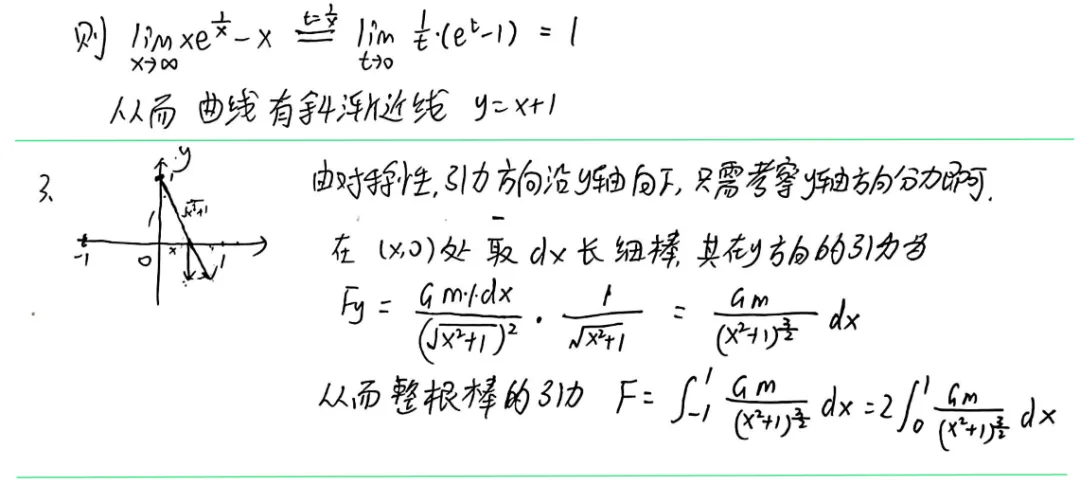 则 lim_{x→∞} xe^{1/x} - x \overset{t=1/x}{=} lim_{t→0} 1/t·(e^t-1) = 1
从而 曲线有斜渐近线 y=x+1
3、
y
1
√(x²+1)
1
-1 0 x 1
由对称性,引力方向沿y轴向下,只需考察y轴方向分力即可.
在 (x,0)处 取 dx 长细棒,其在y方向的引力为
Fy = Gm·1·dx/(√(x²+1))² · 1/√(x²+1) = Gm/(x²+1)^{3/2} dx
从而整根棒的引力 F = ∫_{-1}^{1} Gm/(x²+1)^{3/2} dx = 2∫_0^1 Gm/(x²+1)^{3/2} dx